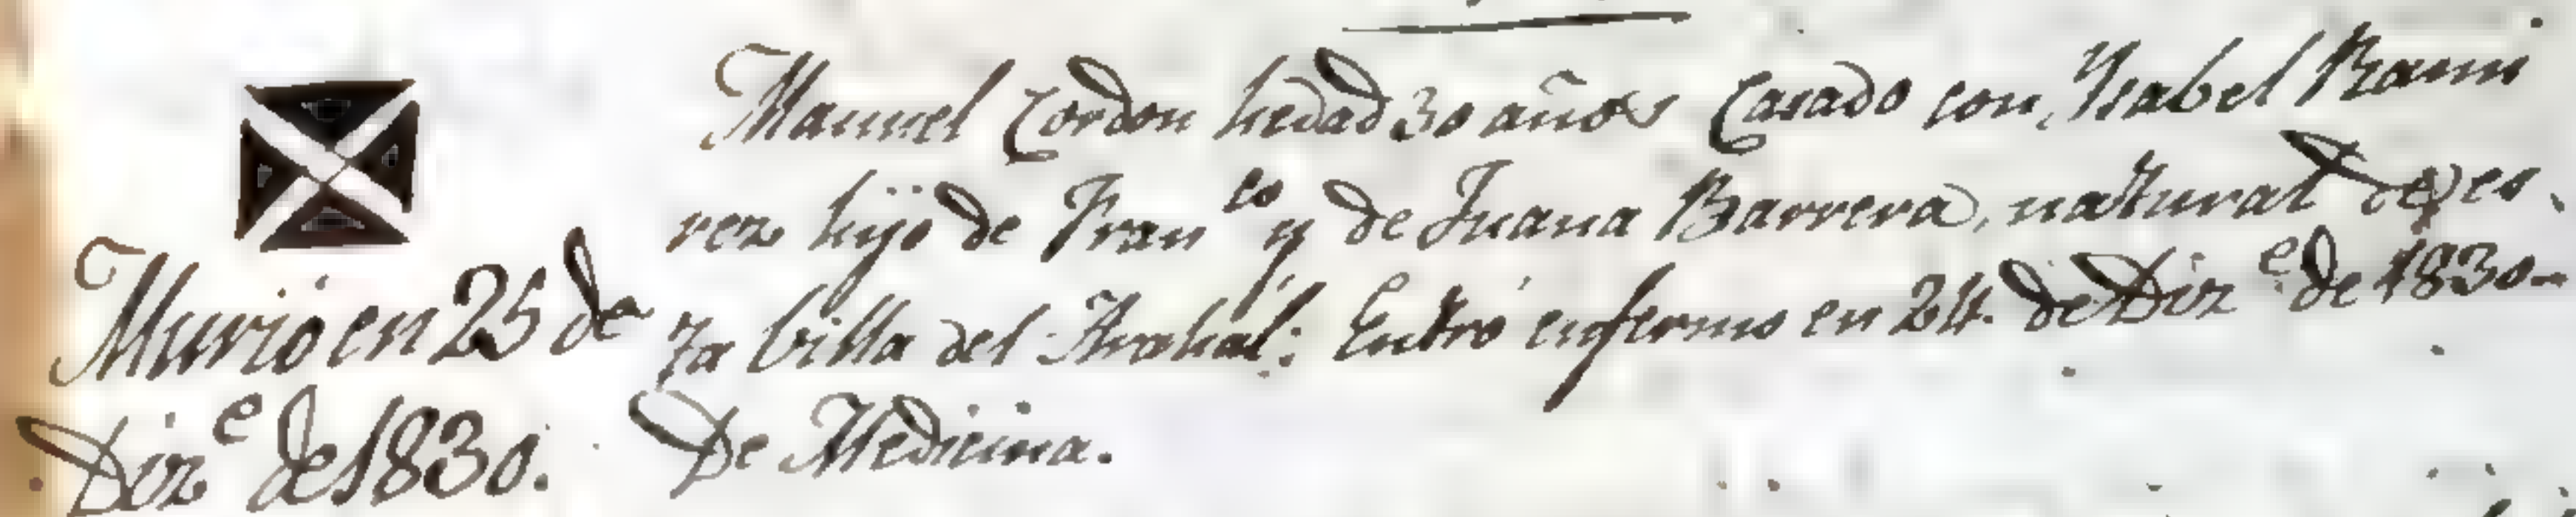 Manuel Cordon hedad 30 años Casado con, Ysabel Rami
rez hijo de Fran.co y de Juana Barrera, natural de es
ta billa del Arahal: Entró enfermo en 24. de Diz.e de 1830-
De Medicina.
Murió en 25 de
Diz.e de 1830.